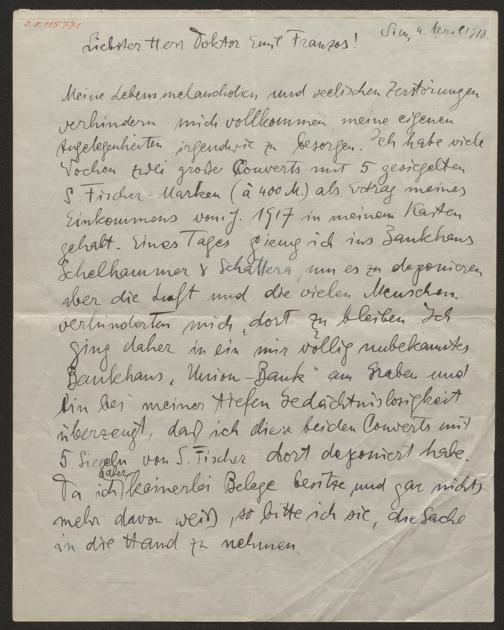 J.N. 115.771
Wien, 4. April 1918.
Liebster Herr Doktor Emil Franzos!
Meine Lebensmelancholien und seelischen Zerstörungen
verhindern mich vollkommen meine eigenen
Angelegenheiten irgendwie zu besorgen. Ich habe viele
Wochen zwei große Couverts mit 5 gesiegelten
S. Fischer-Marken (à 400 M.) als Ertrag meines
Einkommens vom J. 1917 in meinem Kasten
gehabt. Eines Tages gieng ich ins Bankhaus
Schelhammer & Schattera, um es zu deponieren
aber die Luft und die vielen Menschen
verhinderten mich, dort zu bleiben. Ich
ging daher in ein mir völlig unbekanntes
Bankhaus „Union-Bank" am Graben und
bin bei meiner tiefen Gedächtnislosigkeit
überzeugt, daß ich diese beiden Couverts mit
5 Siegeln von S. Fischer dort deponiert habe.
Da ich daher keinerlei Belege besitze und gar nichts
mehr davon weiß, so bitte ich sie, die Sache
in die Hand zu nehmen.